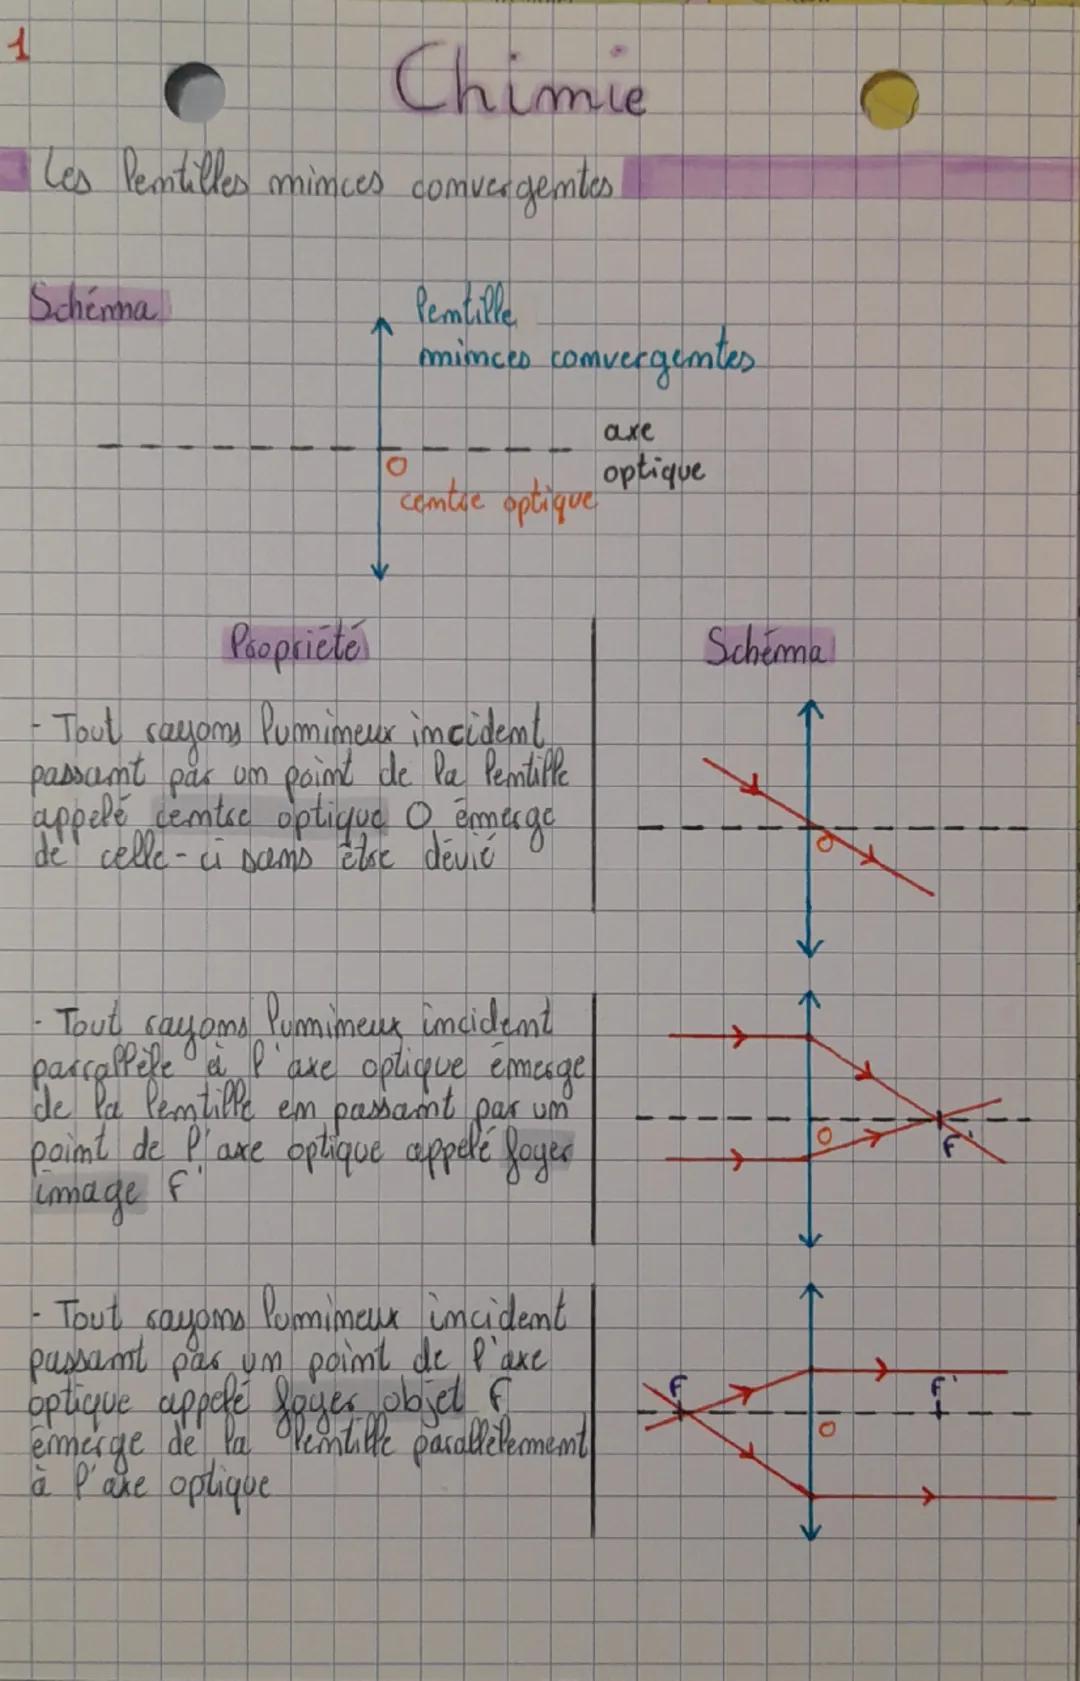 1
Chimie
Les lentilles minces convergentes
Schéma
lentille
minces convergentes
axe
optique
O
centre optique
Propriété
Schéma
- Tout rayons lumineux incident
passant par un point de la lentille
appelé centre optique O émerge
de celle-ci sans être dévié
O
- Tout rayons lumineux incident
parrallèle à l'axe optique émerge
de la lentille en passant par un
point de l'axe optique appelé foyer
image F'
O
F'
- Tout rayons lumineux incident
passant par un point de l'axe
optique appelé foyer objet F
émerge de la lentille parallèlement
à l'axe optique
F
F'
O